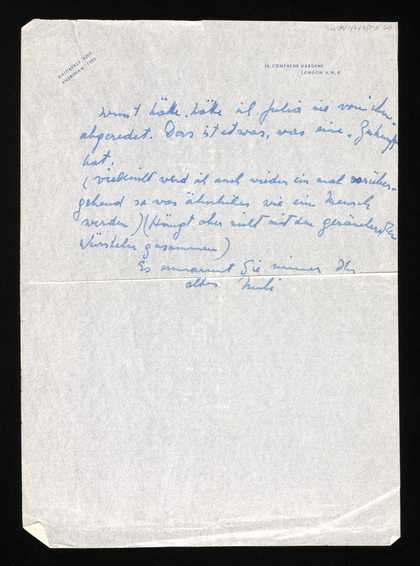 24, COMPAYNE GARDENS
LONDON N.W.6
wusst hätte, hätte ich Julia nie von ihm
abgeredet. Das ist etwas, was eine Zukunft
hat.
(vielleicht werd ich auch wieder ein mal vorüber-
gehend so was ähnliches wie ein Mensch
werden) (Hängt aber nicht mit den geränderten
Würsteln zusammen)
Es umarmt Sie immer Ihr
altes